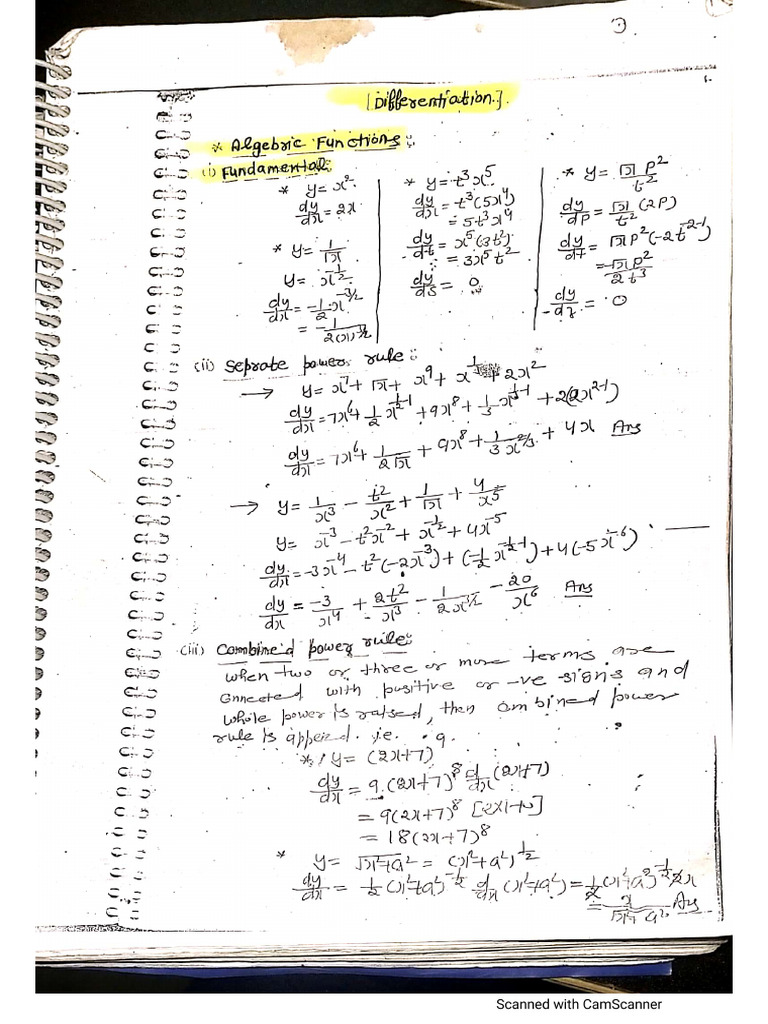 [Differentiation.]
* Algebric Functions:
(i) Fundamental:
* y = x²
dy/dx = 2x
* y = 1/√x
y = x^-1/2
dy/dx = -1/2 x^-3/2
= -1/2(x)^3/2
* y = t³x⁵
dy/dx = t³(5x⁴)
= 5t³x⁴
dy/dt = x⁵(3t²)
= 3x⁵t²
dy/ds = 0
* y = √x p²/t²
dy/dp = √x/t² (2p)
dy/dt = √x p²(-2t^-2-1)
= -√x p²/2t³
dy/dz = 0
(ii) Seprate power rule:
→ y = x⁷ + √x + x⁹ + x^1/3 + 2x²
dy/dx = 7x⁶ + 1/2 x^1/2-1 + 9x⁸ + 1/3 x^1/3-1 + 2(2x^2-1)
dy/dx = 7x⁶ + 1/2√x + 9x⁸ + 1/3x^2/3 + 4x Ans
→ y = 1/x³ - t²/x² + 1/√x + 4/x⁵
y = x^-3 - t²x^-2 + x^-1/2 + 4x^-5
dy/dx = -3x^-4 - t²(-2x^-3) + (-1/2 x^-1/2-1) + 4(-5x^-6)
dy/dx = -3/x⁴ + 2t²/x³ - 1/2x^3/2 - 20/x⁶ Ans
(iii) Combined power rule:
when two or three or more terms are
connected with positive or -ve signs and
whole power is raised, then combined power
rule is appeid. i.e.
* y = (2x+7)⁹
dy/dx = 9.(2x+7)⁸ d/dx (2x+7)
= 9(2x+7)⁸ [2x1+0]
= 18(2x+7)⁸
* y = √x²+a² = (x²+a²)^1/2
dy/dx = 1/2 (x²+a²)^-1/2 d/dx (x²+a²) = 1/2 (x²+a²)^-1/2 2x
= x/√x²+a² Ans
Scanned with CamScanner